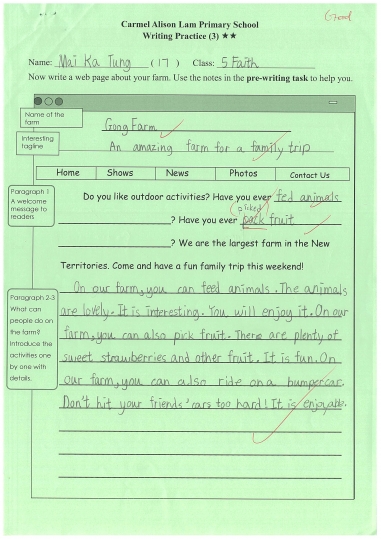 Good
Carmel Alison Lam Primary School
Writing Practice (3) ★★
Name: Mai Ka Tung (17) Class: 5 Faith
Now write a web page about your farm. Use the notes in the pre-writing task to help you.
Name of the farm
Gong Farm
Interesting tagline
An amazing farm for a family trip
Home Shows News Photos Contact Us
Paragraph 1
A welcome message to readers
Do you like outdoor activities? Have you ever fed animals
picked
? Have you ever pack fruit
? We are the largest farm in the New
Territories. Come and have a fun family trip this weekend!
Paragraph 2-3
What can people do on the farm? Introduce the activities one by one with details.
On our farm, you can feed animals. The animals
are lovely. It is interesting. You will enjoy it. On our
farm, you can also pick fruit. There are plenty of
sweet strawberries and other fruit. It is fun. On
our farm, you can also ride on a bumpercar.
Don't hit your friends' cars too hard! It is enjoyable.